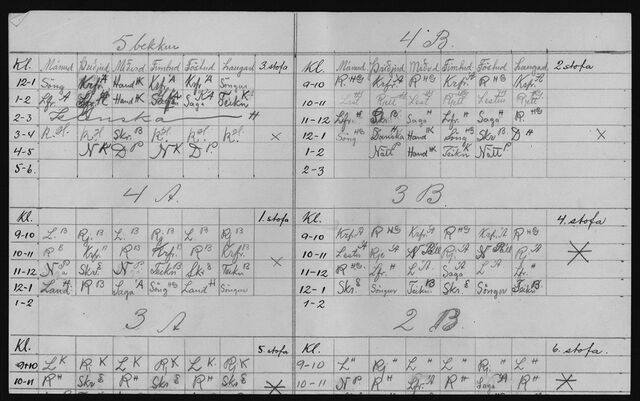 5 bekkur
Kl. Mánud Þriðjud Miðvid Fimtud Föstud Laugard 3. stofa
12-1 Söng Krfr. A Hand K Krfr. A Krfr. A Söngur
1-2 Lfr. A Hand K Saga A Teikn
2-3 H
3-4 R. R. Skr. B R. R. R.
4-5 N K D P. N K D P.
5-6.
4 B.
Kl. Mánud Þriðjud Miðvid Fimtud Föstud Laugard 2 stofa
9-10 R HG Krfr. A R HG Krfr. A R HG Krfr. A
10-11 Lest Rjett Lest Rjett Lestur Rjett
11-12 Lfr. A Saga A Lfr. A Saga A R HG
12-1 Söng Danska Hand K Söng Skr B D H
1-2 Nátt P Hand K Teikn Nátt P
2-3
4 A.
Kl. 1. stofa
9-10 L B Rj. B L B Rj B L B Rj B
10-11 R E Krfr. R B Krfr. R B Krfr.
11-12 N P Skr. E N P. Teikn Skr E Teikn B
12-1 Land H R B Saga A Söng HG Land H Söngur
1-2
3 B.
Kl. 4. stofa
9-10 Krfr. A R HG Krfr. A R HG Krfr. A R HG
10-11 Lestu A Rje A N Páll Rj. A N Páll Rj. A
11-12 R HG Lfr. A L A Saga A L A Lfr. A
12-1 Skr. E Söngur Teikn. B Skr. E Söngur Teikn B
1-2
3 A
Kl. 5. stofa
9-10 L K Rj K L K Rj K L K Rj K
10-11 R H Skr E R H Skr E R H Skr E
2 B.
Kl. 6. stofa
9-10 L H Rj H L H L H Rj. H L H
10-11 N P R H Lfr. A R H Saga A R H